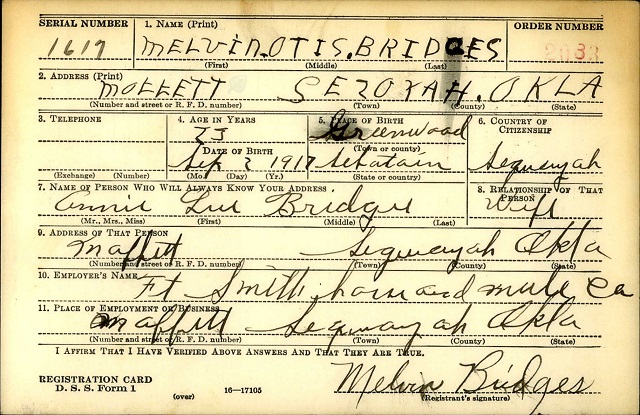 SERIAL NUMBER 1. NAME (Print) ORDER NUMBER
1617 MELVIN.OTIS.BRIDGES 2083
(First) (Middle) (Last)
2. ADDRESS (Print)
MOFFETT SEZOYAH. OKLA
(Number and street or R. F. D. number) (Town) (County) (State)
3. TELEPHONE 4. AGE IN YEARS 5. PLACE OF BIRTH 6. COUNTRY OF CITIZENSHIP
23 Greenwood
DATE OF BIRTH (Town or county)
Sep 2 1917 Sequoyah
(Exchange) (Number) (Mo.) (Day) (Yr.) (State or country)
7. NAME OF PERSON WHO WILL ALWAYS KNOW YOUR ADDRESS 8. RELATIONSHIP OF THAT PERSON
Annie Lou Bridges Wife
(Mr., Mrs., Miss) (First) (Middle) (Last)
9. ADDRESS OF THAT PERSON
Moffett Seqwoyah Okla
(Number and street or R. F. D. number) (Town) (County) (State)
10. EMPLOYER'S NAME
Ft Smith horse and mule Co
11. PLACE OF EMPLOYMENT OR BUSINESS
Moffett Seqwoyah Okla
(Number and street or R. F. D. number) (Town) (County) (State)
I AFFIRM THAT I HAVE VERIFIED ABOVE ANSWERS AND THAT THEY ARE TRUE.
REGISTRATION CARD
D. S. S. Form 1 Melvin Bridges
(over) 16—17105 (Registrant's signature)